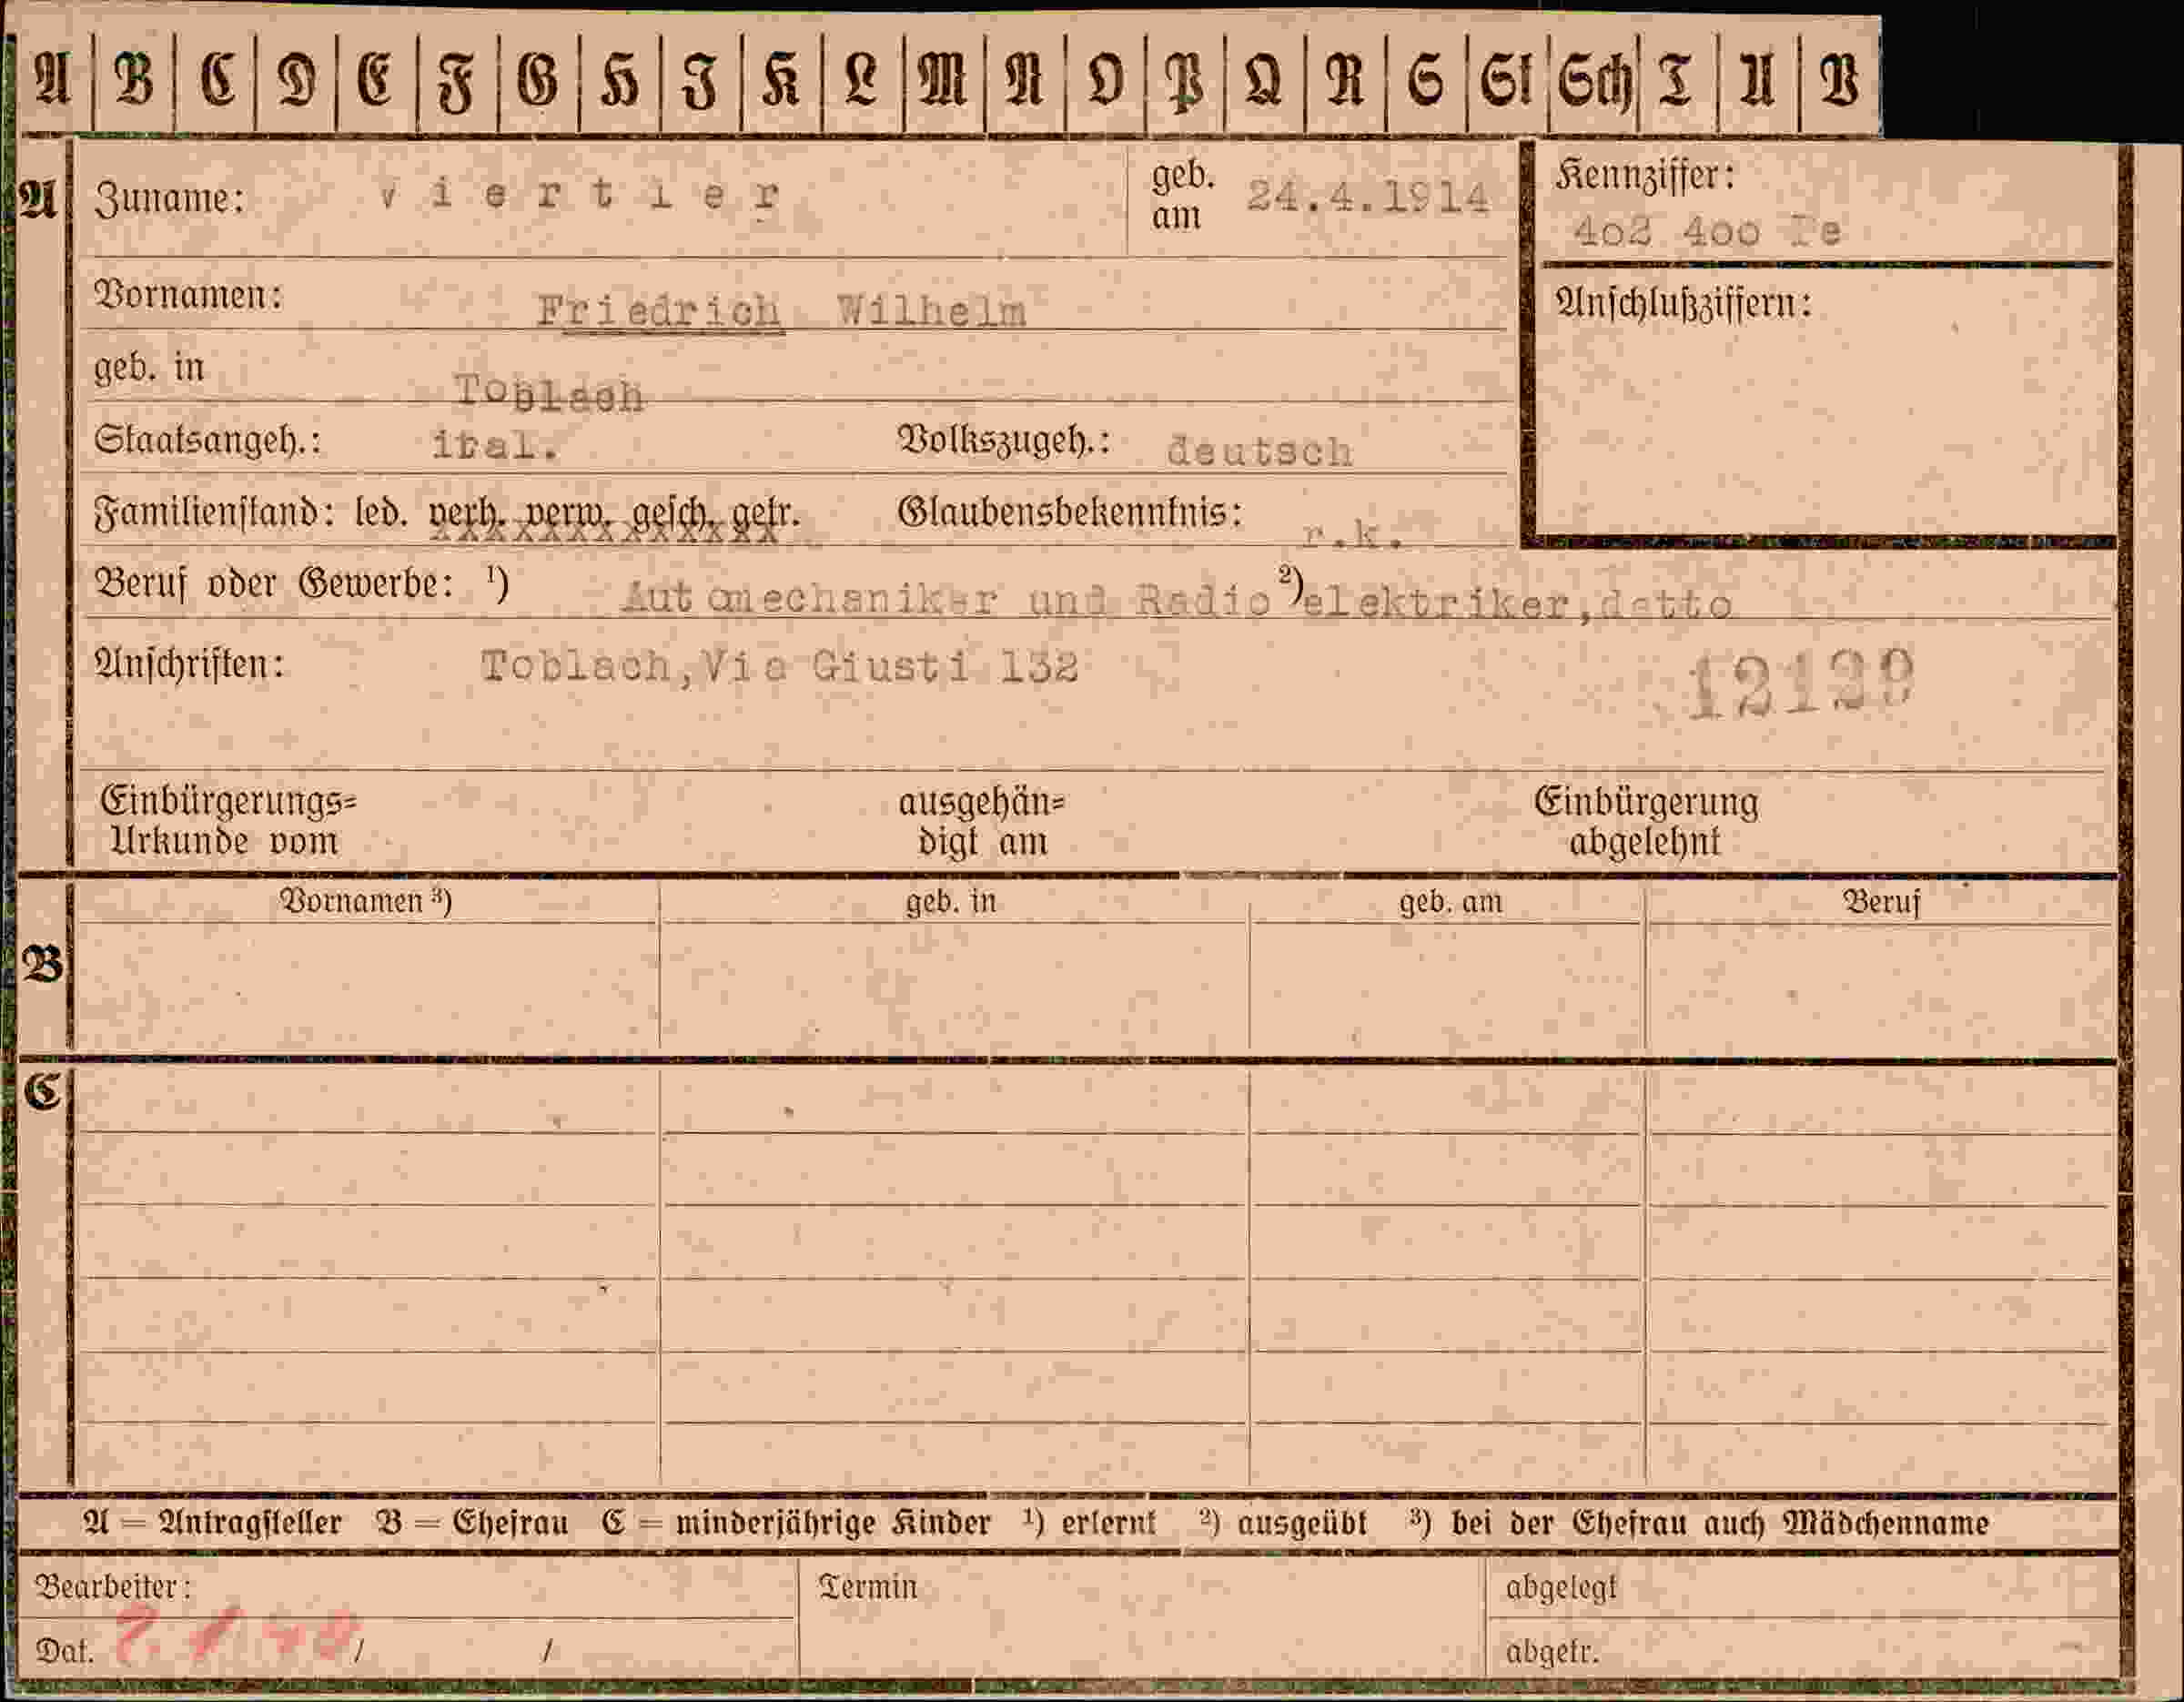 A B C D E F G H I K L M N O P Q R S St Sch T U V
A Zuname: v i e r t l e r geb. am 24.4.1914 Kennziffer:
402 400 Pe
Vornamen: Friedrich Wilhelm Anschlußziffern:
geb. in Toblach
Staatsangeh.: ital. Volkszugeh.: deutsch
Familienstand: led. verh. verw. gesch. getr. Glaubensbekenntnis: r.k.
Beruf oder Gewerbe: ¹) Automechaniker und Radio ²)elektriker,detto
Anschriften: Toblach,Via Giusti 132 12129
Einbürgerungs= ausgehän= Einbürgerung
Urkunde vom digt am abgelehnt
Vornamen ³) geb. in geb. am Beruf
B
C
A = Antragsteller B = Ehefrau C = minderjährige Kinder ¹) erlernt ²) ausgeübt ³) bei der Ehefrau auch Mädchenname
Bearbeiter: Termin abgelegt
Dat. / / abgetr.